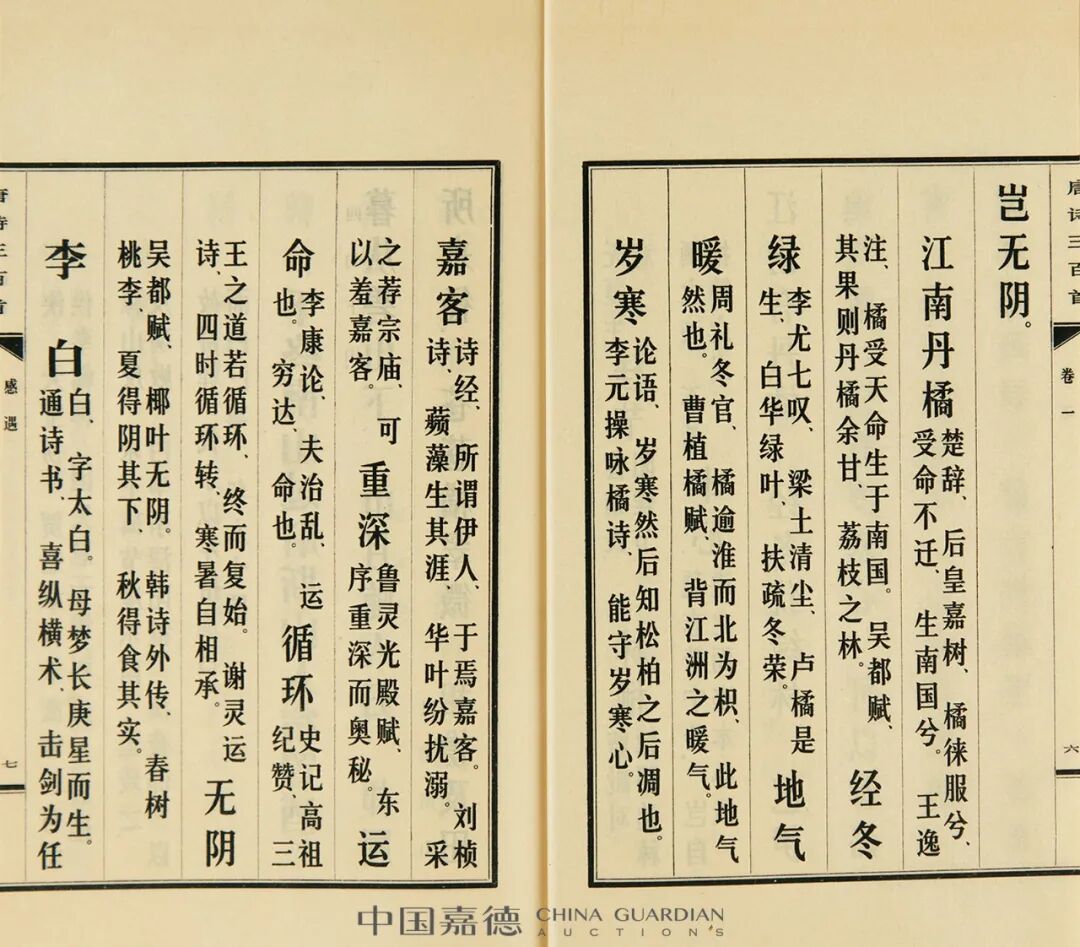 唐诗三百首 卷一 六
岂无阴。
江南丹橘
楚辞、后皇嘉树、橘徕服兮、
受命不迁、生南国兮。王逸
注、橘受天命生于南国。吴都赋、
其果则丹橘余甘、荔枝之林。
经冬
绿
李尤七叹、梁土清尘、卢橘是
生、白华绿叶、扶疏冬荣。
地气
暖
周礼冬官、橘逾淮而北为枳、此地气
然也。曹植橘赋、背江洲之暖气。
岁寒
论语、岁寒然后知松柏之后凋也。
李元操咏橘诗、能守岁寒心。
嘉客
诗经、所谓伊人、于焉嘉客。刘桢
诗、𬞟藻生其涯、华叶纷扰溺。采
之荐宗庙、可
以羞嘉客。
重深
鲁灵光殿赋、东
序重深而奥秘。
运
命
李康论、夫治乱、运
也。穷达、命也。
循环
史记高祖
纪赞、三
王之道若循环、终而复始。谢灵运
诗、四时循环转、寒暑自相承。
无阴
吴都赋、椰叶无阴。韩诗外传、春树
桃李、夏得阴其下、秋得食其实。
李白
白、字太白。母梦长庚星而生。
通诗书、喜纵横术、击剑为任
唐诗三百首 感遇 七
中国嘉德 CHINA GUARDIAN
AUCTIONS